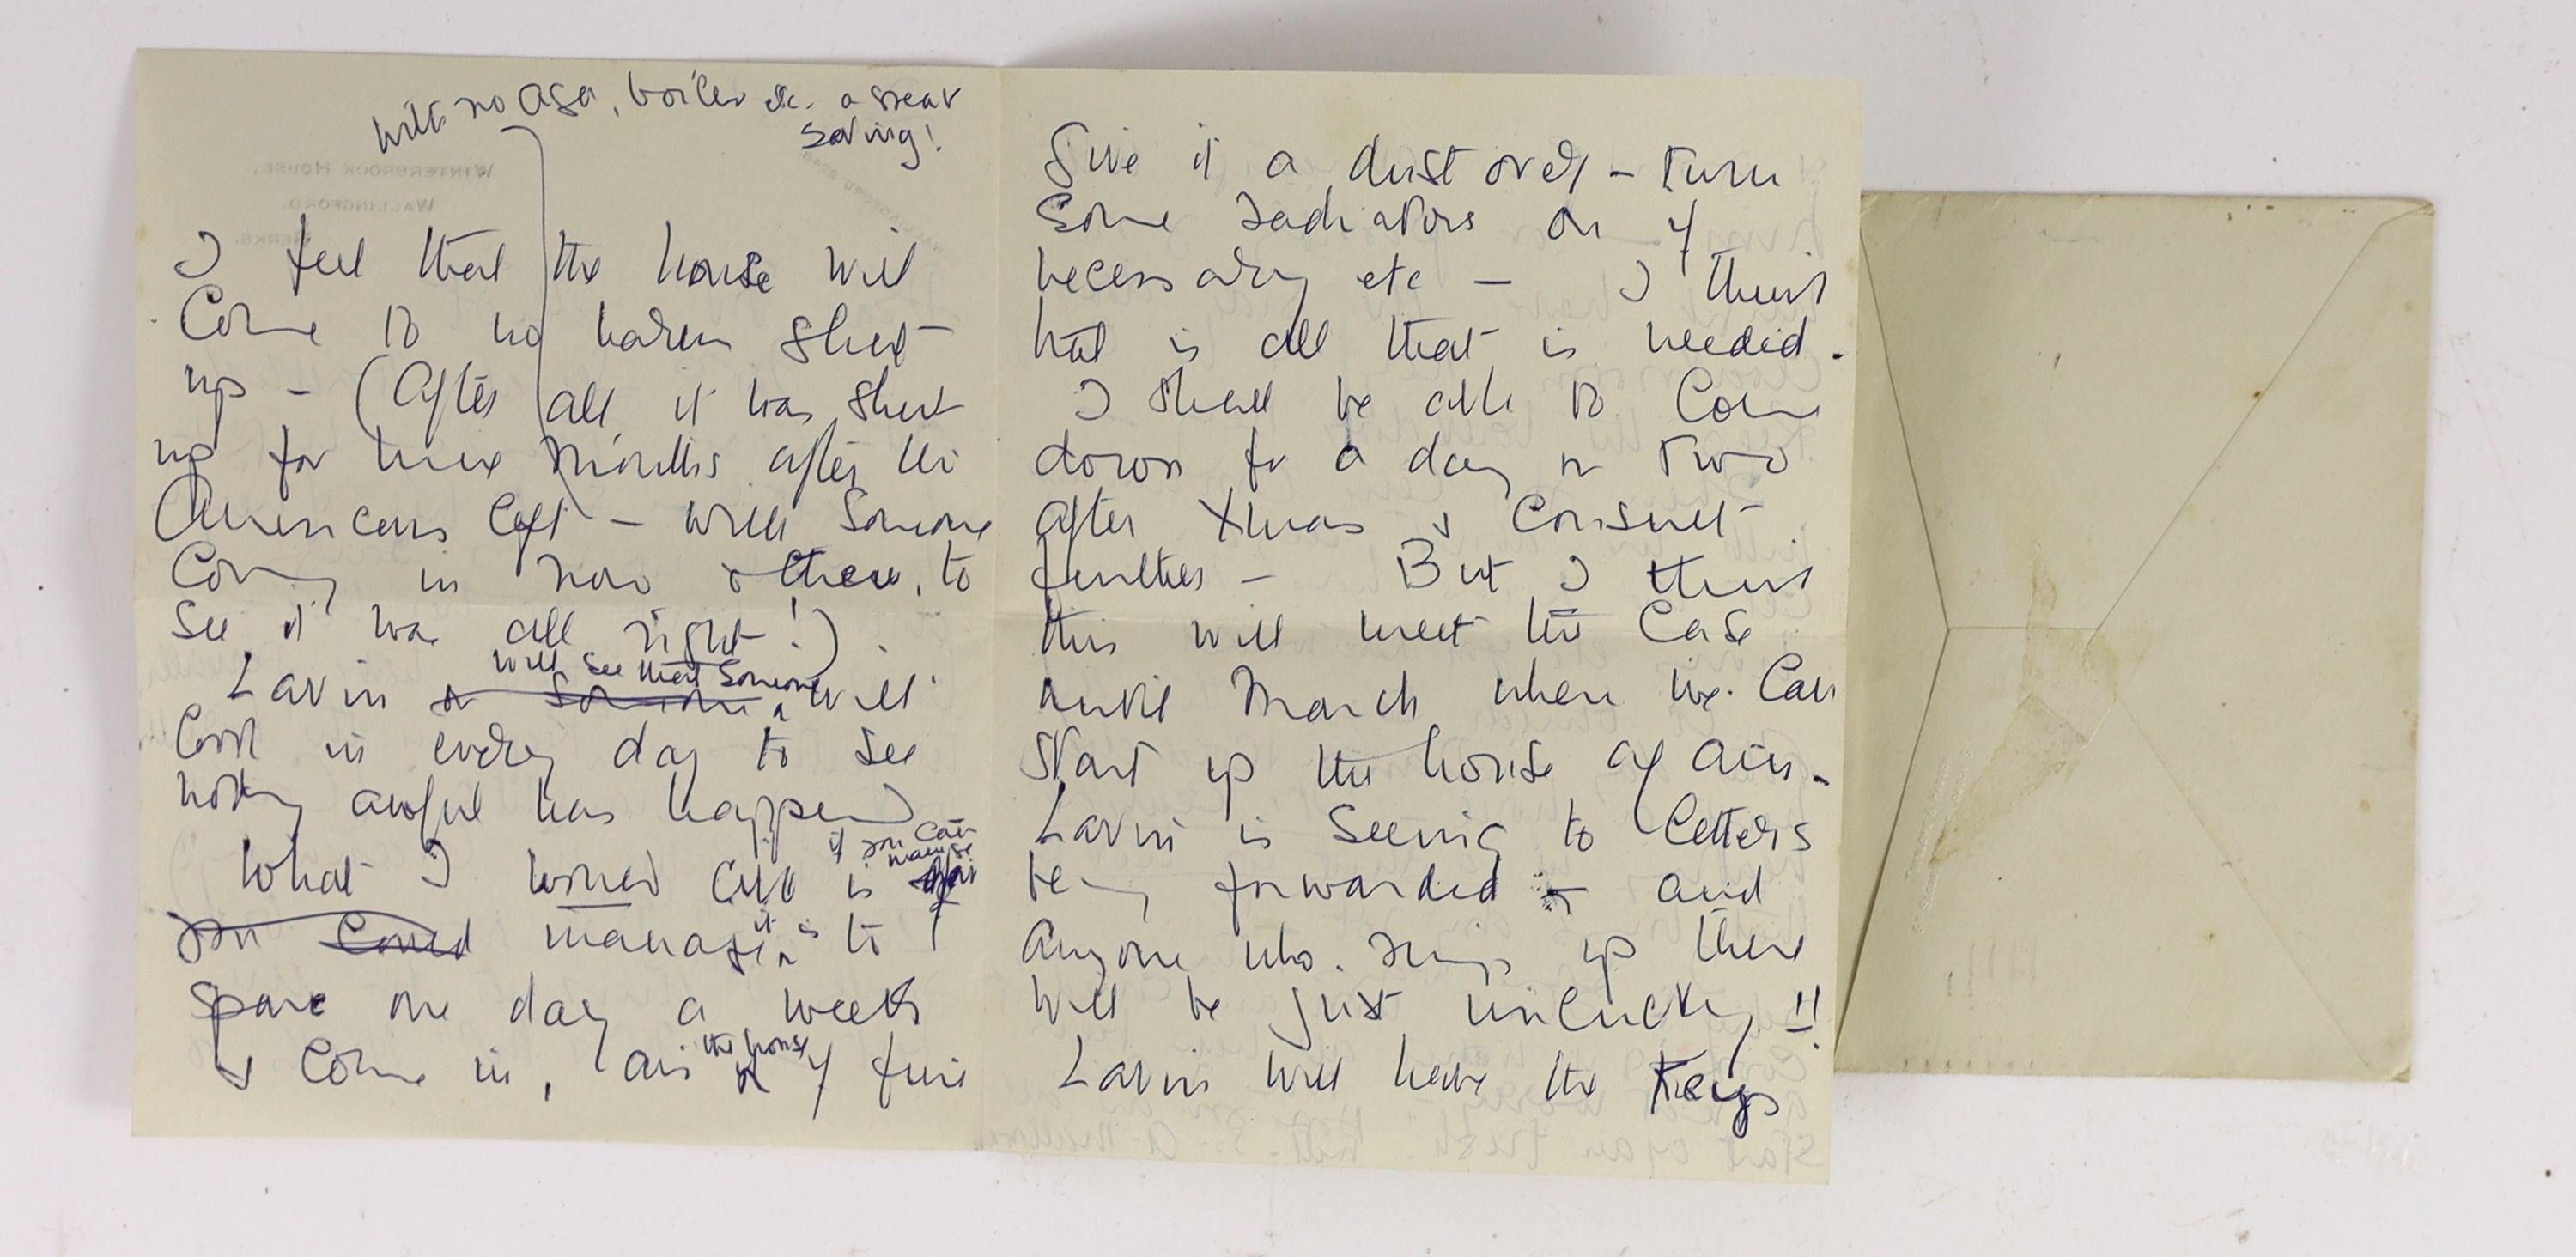 with no Aga, boiler etc. a great
saving!
WINTERBROOK HOUSE,
WALLINGFORD,
BERKS.
I feel that the house will
come to no harm shut
up - (After all it was shut
up for three months after the
Americans left - with someone
coming in now & then, to
see it was all right!).
will see that someone
Lavin or someone will
look in every day to see
nothing awful has happened
if you can
manage
What I would like is
you could manage it is to
spare one day a week
the house
& come in, air if fine
Give it a dust over - turn
some radiators on if
necessary etc - I think
that is all that is needed.
I shall be able to come
down for a day or two
after Xmas & consult
further - But I think
this will meet the case
until March when we can
start up the house again.
Lavin is seeing to letters
being forwarded - and
anyone who rings up there
will be just unlucky!!
Lavin will have the keys